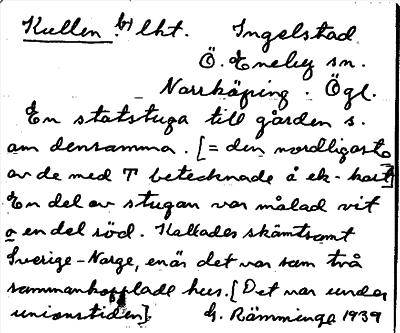 Kullen b) lht. Ingelstad
Ö. Eneby sn.
Norrköping. Ögl.
En statstuga till gården s.
om densamma. [= den nordligaste
av de med T betecknade å ek-kart]
En del av stugan var målad vit
o en del röd. Kallades skämtsamt
Sverige-Norge, enär det var som två
sammanhopplade hus. [Det var under
unionstiden]. G. Rämminge 1939